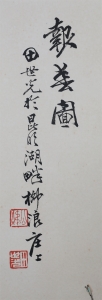 報春圖
田世光於昆明湖畔柳浪庄